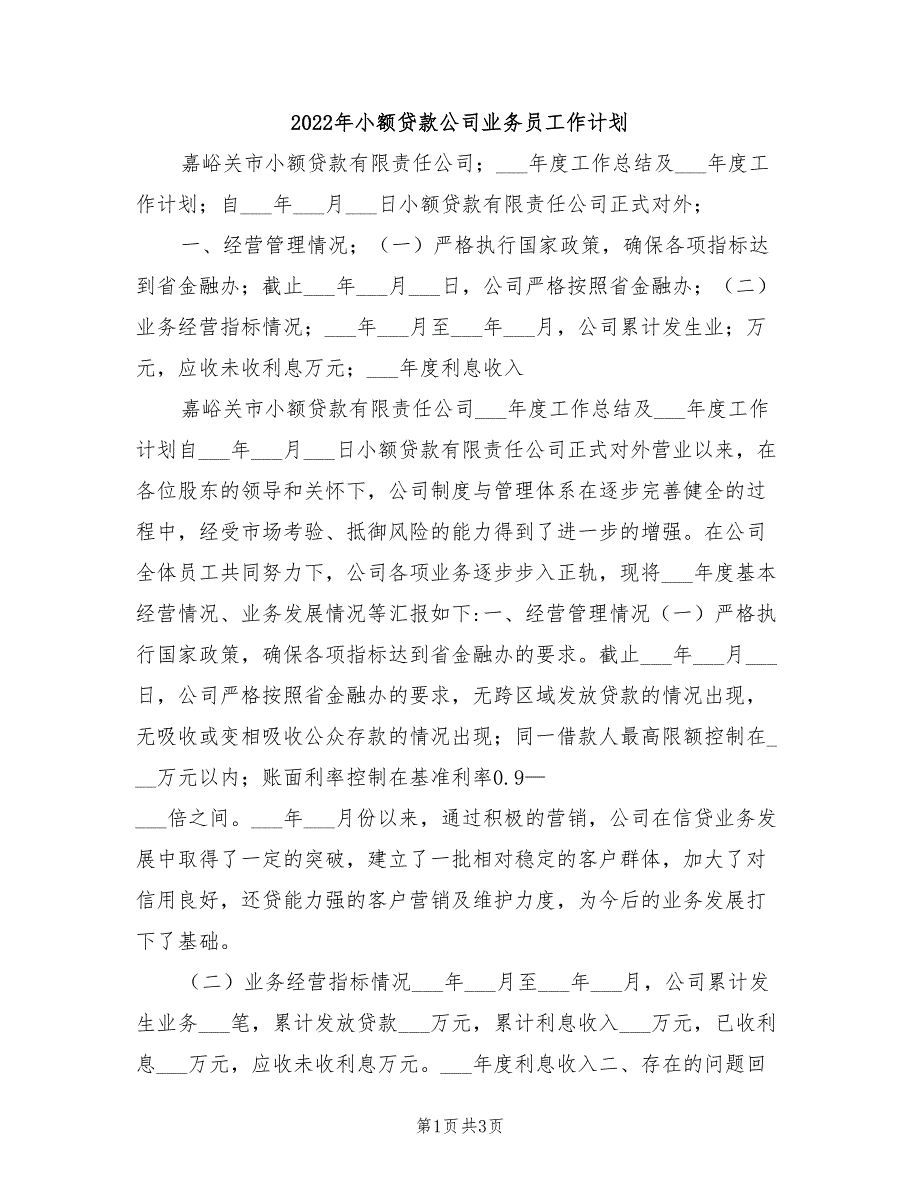 2022年小额贷款公司业务员工作计划
嘉峪关市小额贷款有限责任公司；___年度工作总结及___年度工
作计划；自___年___月___日小额贷款有限责任公司正式对外；
一、经营管理情况；（一）严格执行国家政策，确保各项指标达
到省金融办；截止___年___月___日，公司严格按照省金融办；（二）
业务经营指标情况；___年___月至___年___月，公司累计发生业；万
元，应收未收利息万元；___年度利息收入
嘉峪关市小额贷款有限责任公司___年度工作总结及___年度工作
计划自___年___月___日小额贷款有限责任公司正式对外营业以来，在
各位股东的领导和关怀下，公司制度与管理体系在逐步完善健全的过
程中，经受市场考验、抵御风险的能力得到了进一步的增强。在公司
全体员工共同努力下，公司各项业务逐步步入正轨，现将___年度基本
经营情况、业务发展情况等汇报如下:一、经营管理情况（一）严格执
行国家政策，确保各项指标达到省金融办的要求。截止___年___月___
日，公司严格按照省金融办的要求，无跨区域发放贷款的情况出现，
无吸收或变相吸收公众存款的情况出现；同一借款人最高限额控制在_
__万元以内；账面利率控制在基准利率0.9—
___倍之间。___年___月份以来，通过积极的营销，公司在信贷业务发
展中取得了一定的突破，建立了一批相对稳定的客户群体，加大了对
信用良好，还贷能力强的客户营销及维护力度，为今后的业务发展打
下了基础。
（二）业务经营指标情况___年___月至___年___月，公司累计发
生业务___笔，累计发放贷款___万元，累计利息收入___万元，已收利
息___万元，应收未收利息万元。___年度利息收入二、存在的问题回
第1页共3页